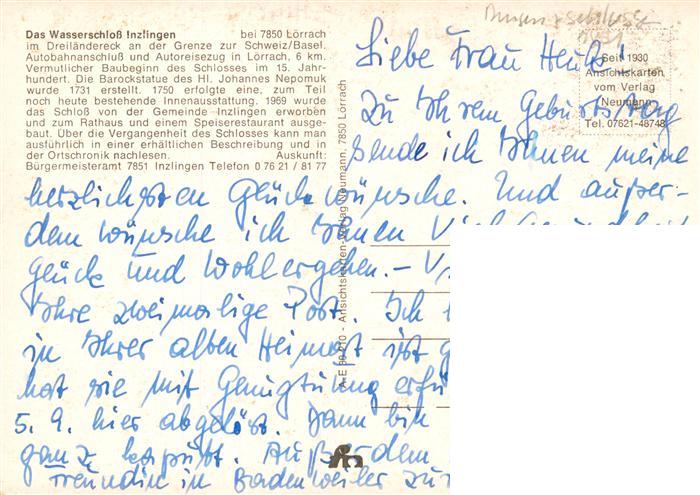 Das Wasserschloß Inzlingen bei 7850 Lörrach
im Dreiländereck an der Grenze zur Schweiz/Basel.
Autobahnanschluß und Autoreisezug in Lörrach, 6 km.
Vermutlicher Baubeginn des Schlosses im 15. Jahr-
hundert. Die Barockstatue des Hl. Johannes Nepomuk
wurde 1731 erstellt. 1750 erfolgte eine, zum Teil
noch heute bestehende Innenausstattung. 1969 wurde
das Schloß von der Gemeinde Inzlingen erworben
und zum Rathaus und einem Speiserestaurant ausge-
baut. Über die Vergangenheit des Schlosses kann man
ausführlich in einer erhältlichen Beschreibung und in
der Ortschronik nachlesen. Auskunft:
Bürgermeisteramt 7851 Inzlingen Telefon 0 76 21 / 81 77
A+E 50 210 - Ansichtskarten-Verlag Neumann, 7850 Lörrach
Seit 1930
Ansichtskarten
vom Verlag
Neumann
Tel. 07621-48748
Liebe Frau
Zu Ihrem Geburtstag
sende ich Ihnen meine
herzlichsten Glückwünsche. Und außer-
dem wünsche ich Ihnen viel Gesundheit
Glück und Wohlergehen.–
Ihre zweimalige Post. Ich
in Ihrer alten Heimat ist
hat sie mit Genugtuung
5. 9. hier abgelöst. Dann bin
ganz kaputt. Außerdem
Freundin in Badenweiler